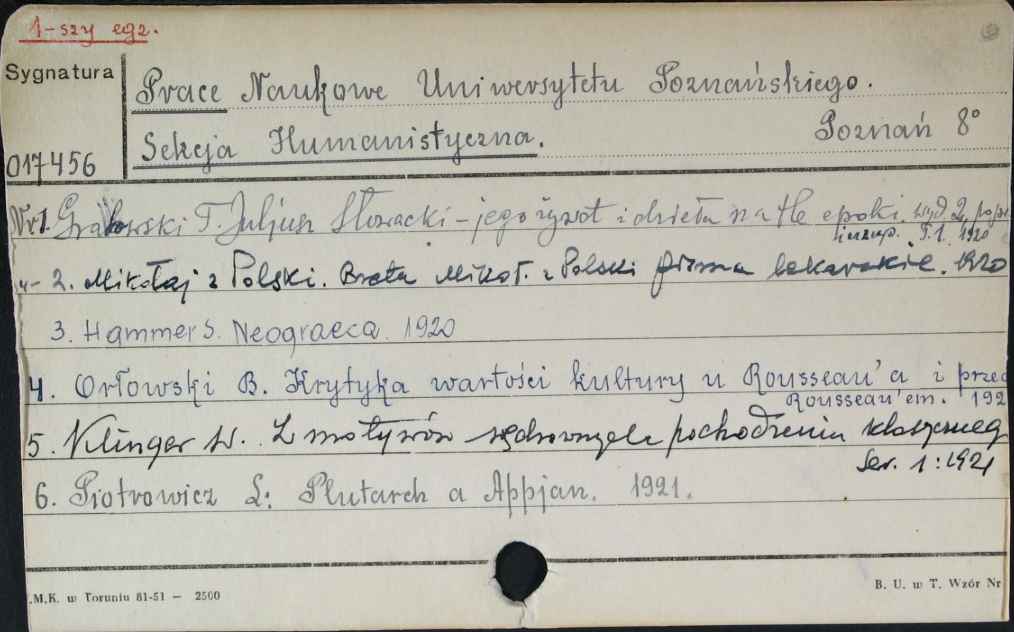 1-szy egz.
Sygnatura
Prace Naukowe Uniwersytetu Poznańskiego.
Sekcja Humanistyczna. Poznań 8°
017456
Nr1. Grabowski T. Juljusz Słowacki - jego żywot i dzieła na tle epoki. wyd. 2, popr.
i uzup. T.1. 1920
"- 2. Mikołaj z Polski. Brata Mikoł. z Polski pisma lekarskie. 1920
3. Hammer S. Neograeca. 1920
4. Orłowski B. Krytyka wartości kultury u Rousseau'a i przed
Rousseau'em. 192
5. Klinger W. Z motywów wędrownych pochodzenia klasyczneg
Ser. 1: 1921
6. Piotrowicz L: Plutarch a Appjan. 1921.
.M.K. w Toruniu 81-51 — 2500
B. U. w T. Wzór Nr